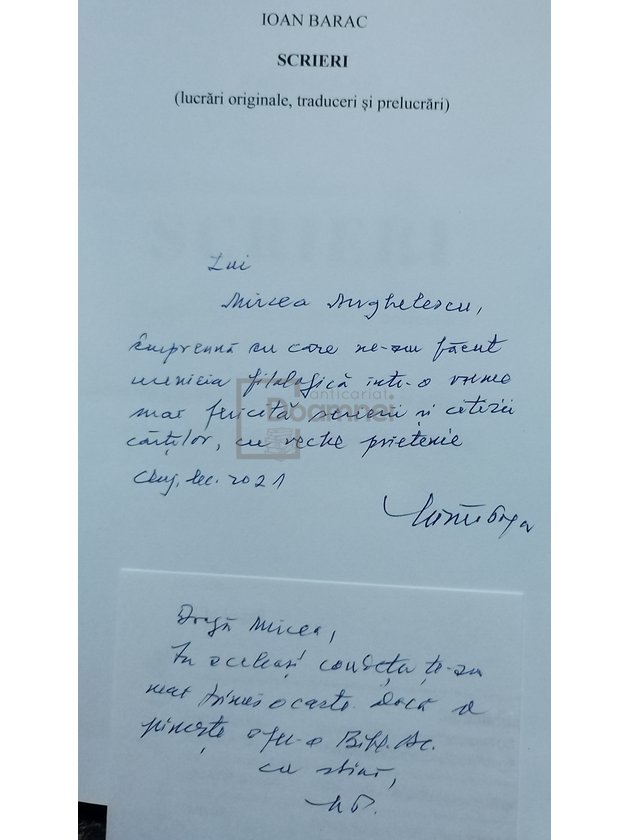 IOAN BARAC
SCRIERI
(lucrări originale, traduceri și prelucrări)
Lui
Mircea Anghelescu,
împreună cu care ne-am făcut
ucenicia filologică într-o vreme
mai fericită scrierii și citirii
cărților, cu veche prietenie
Cluj, dec. 2021
anticariat
Doamnei
Dragă Mircea,
În același te-am
mai trimis o carte. Dacă o
o Bibl. Ac.
cu stimă,